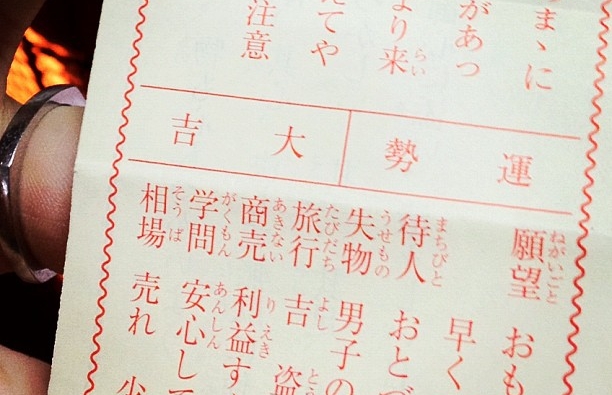 うまゝに
があっ
より来
らい
たてや
注意
運勢
大吉
願望 おも
ねがいごと
早く
待人 おとづ
まちびと
失物 男子の
うせもの
旅行 吉 盗
たびだち よし とう
商売 利益す
あきない りえき
学問 安心して
がくもん あんしん
相場 売れ 少
そうば